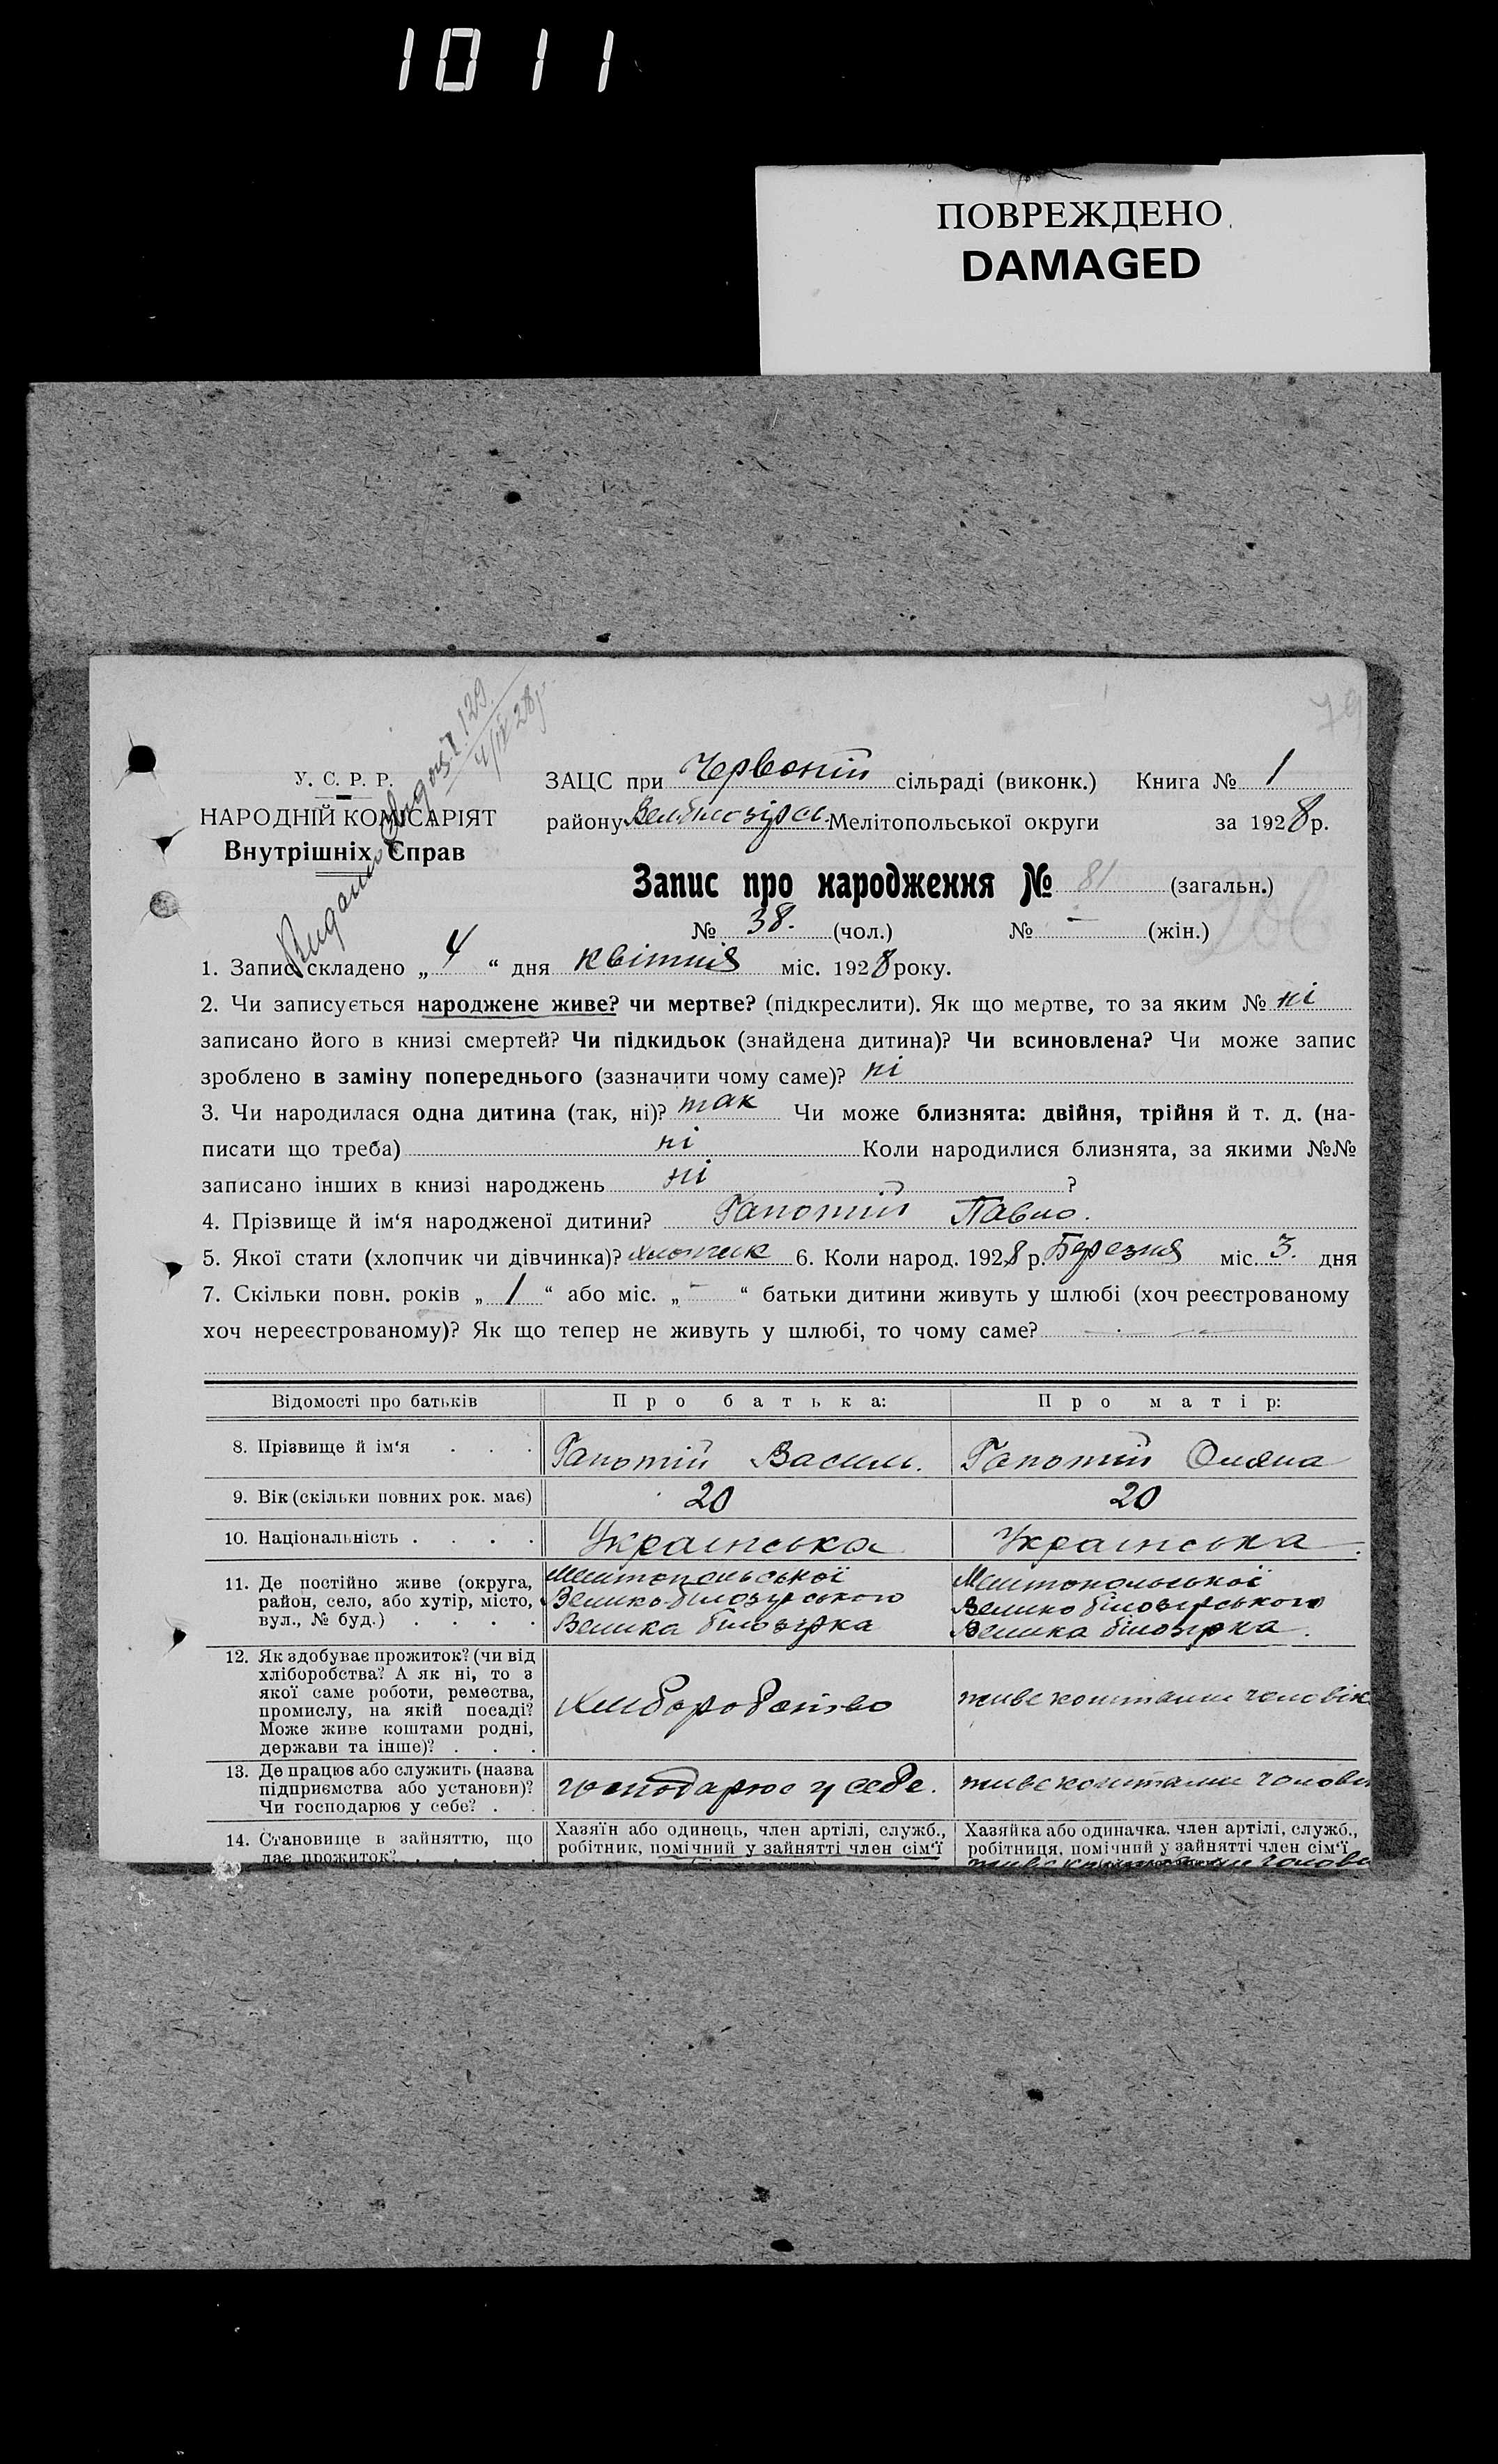 1011
ПОВРЕЖДЕНО
DAMAGED
79
У. С. Р. Р.
НАРОДНІЙ КОМІСАРІЯТ
Внутрішніх Справ
129
4/IV 28р
ЗАЦС при Червоній сільраді (виконк.) Книга № 1
району Мелітопольської округи за 1928 р.
Запис про народження № 81 (загальн.)
№ 38. (чол.) № — (жін.)
1. Запис складено „ 4 “ дня квітнія міс. 1928 року.
2. Чи записується народжене живе? чи мертве? (підкреслити). Як що мертве, то за яким № ні
записано його в книзі смертей? Чи підкидьок (знайдена дитина)? Чи всиновлена? Чи може запис
зроблено в заміну попереднього (зазначити чому саме)? ні
3. Чи народилася одна дитина (так, ні)? так Чи може близнята: двійня, трійня й т. д. (на-
писати що треба) ні Коли народилися близнята, за якими №№
записано інших в книзі народжень ні ?
4. Прізвище й ім‘я народженої дитини? Гапотій Павло.
5. Якої стати (хлопчик чи дівчинка)? хлопчик 6. Коли народ. 1928 р. Березня міс. 3. дня
7. Скільки повн. років „ 1 “ або міс. „ – “ батьки дитини живуть у шлюбі (хоч реєстрованому
хоч нереєстрованому)? Як що тепер не живуть у шлюбі, то чому саме?
Відомості про батьків
Про батька:
Про матір:
8. Прізвище й ім‘я . . .
Гапотій Васил.
Гапотій Оляна
9. Вік (скільки повних рок. має)
20
20
10. Національність . . . .
Українська
Українська
11. Де постійно живе (округа,
район, село, або хутір, місто,
вул., № буд.) . . . .
Мелитопольської
Велико-білозурського
Велика білозурка
Мелитопольської
Велико білозурського
Велика білозурка.
12. Як здобуває прожиток? (чи від
хліборобства? А як ні, то з
якої саме роботи, ремества,
промислу, на якій посаді?
Може живе коштами родні,
держави та інше)? . . .
Хлибороботво
живе коштами человік
13. Де працює або служить (назва
підприємства або установи)?
Чи господарює у себе? . .
господарює у себе.
живе коштами
14. Становище в зайняттю, що
дає прожиток? . . . .
Хазяїн або одинець, член артілі, служб.,
робітник, помічний у зайнятті член сім‘ї
Хазяйка або одиначка. член артілі, служб.,
робітниця, помічний у зайнятті член сім‘ї